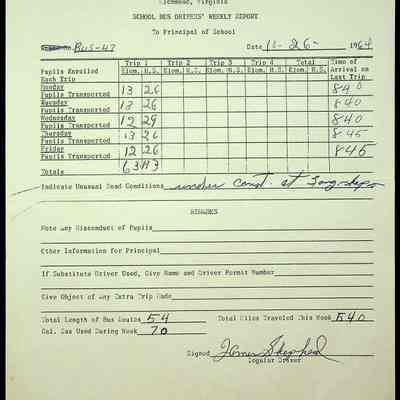 Richmond, Virginia
SCHOOL BUS DRIVERS' WEEKLY REPORT
To Principal of School
Bus-47 Date 10-26- 1964
Trip 1 Trip 2 Trip 3 Trip 4 Total Time of
Pupils Enrolled Elem. H.S. Elem. H.S. Elem. H.S. Elem. H.S. Elem. H.S. Arrival on
Each Trip Last Trip
Monday
Pupils Transported 13 26 840
Tuesday
Pupils Transported 13 26 840
Wednesday
Pupils Transported 12 29 840
Thursday
Pupils Transported 13 26 845
Friday
Pupils Transported 12 26 845
Totals 63
Indicate Unusual Road Conditions under const. at
REMARKS
Note Any Misconduct of Pupils
Other Information for Principal
If Substitute Driver Used, Give Name and Driver Permit Number
Give Object of Any Extra Trip Made
Total Length of Bus Routes 54 Total Miles Traveled This Week 540
Gal. Gas Used During Week 70
Signed Homer Shepherd
Regular Driver